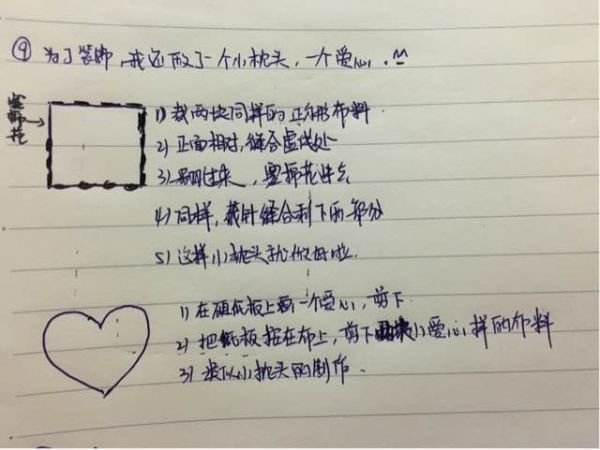 ⑨ 为了装饰，我还做了一个小枕头，一个爱心。
塞棉花
1) 裁两块同样的正方形布料
2) 正面相对，缝合虚线处
3) 翻过来，塞棉花进去
4) 同样，藏针缝合剩下的部分
5) 这样小枕头就做好啦
1) 在硬纸板上画一个爱心，剪下
2) 把纸板按在布上，剪下小爱心样的布料
3) 类似小枕头的制作.